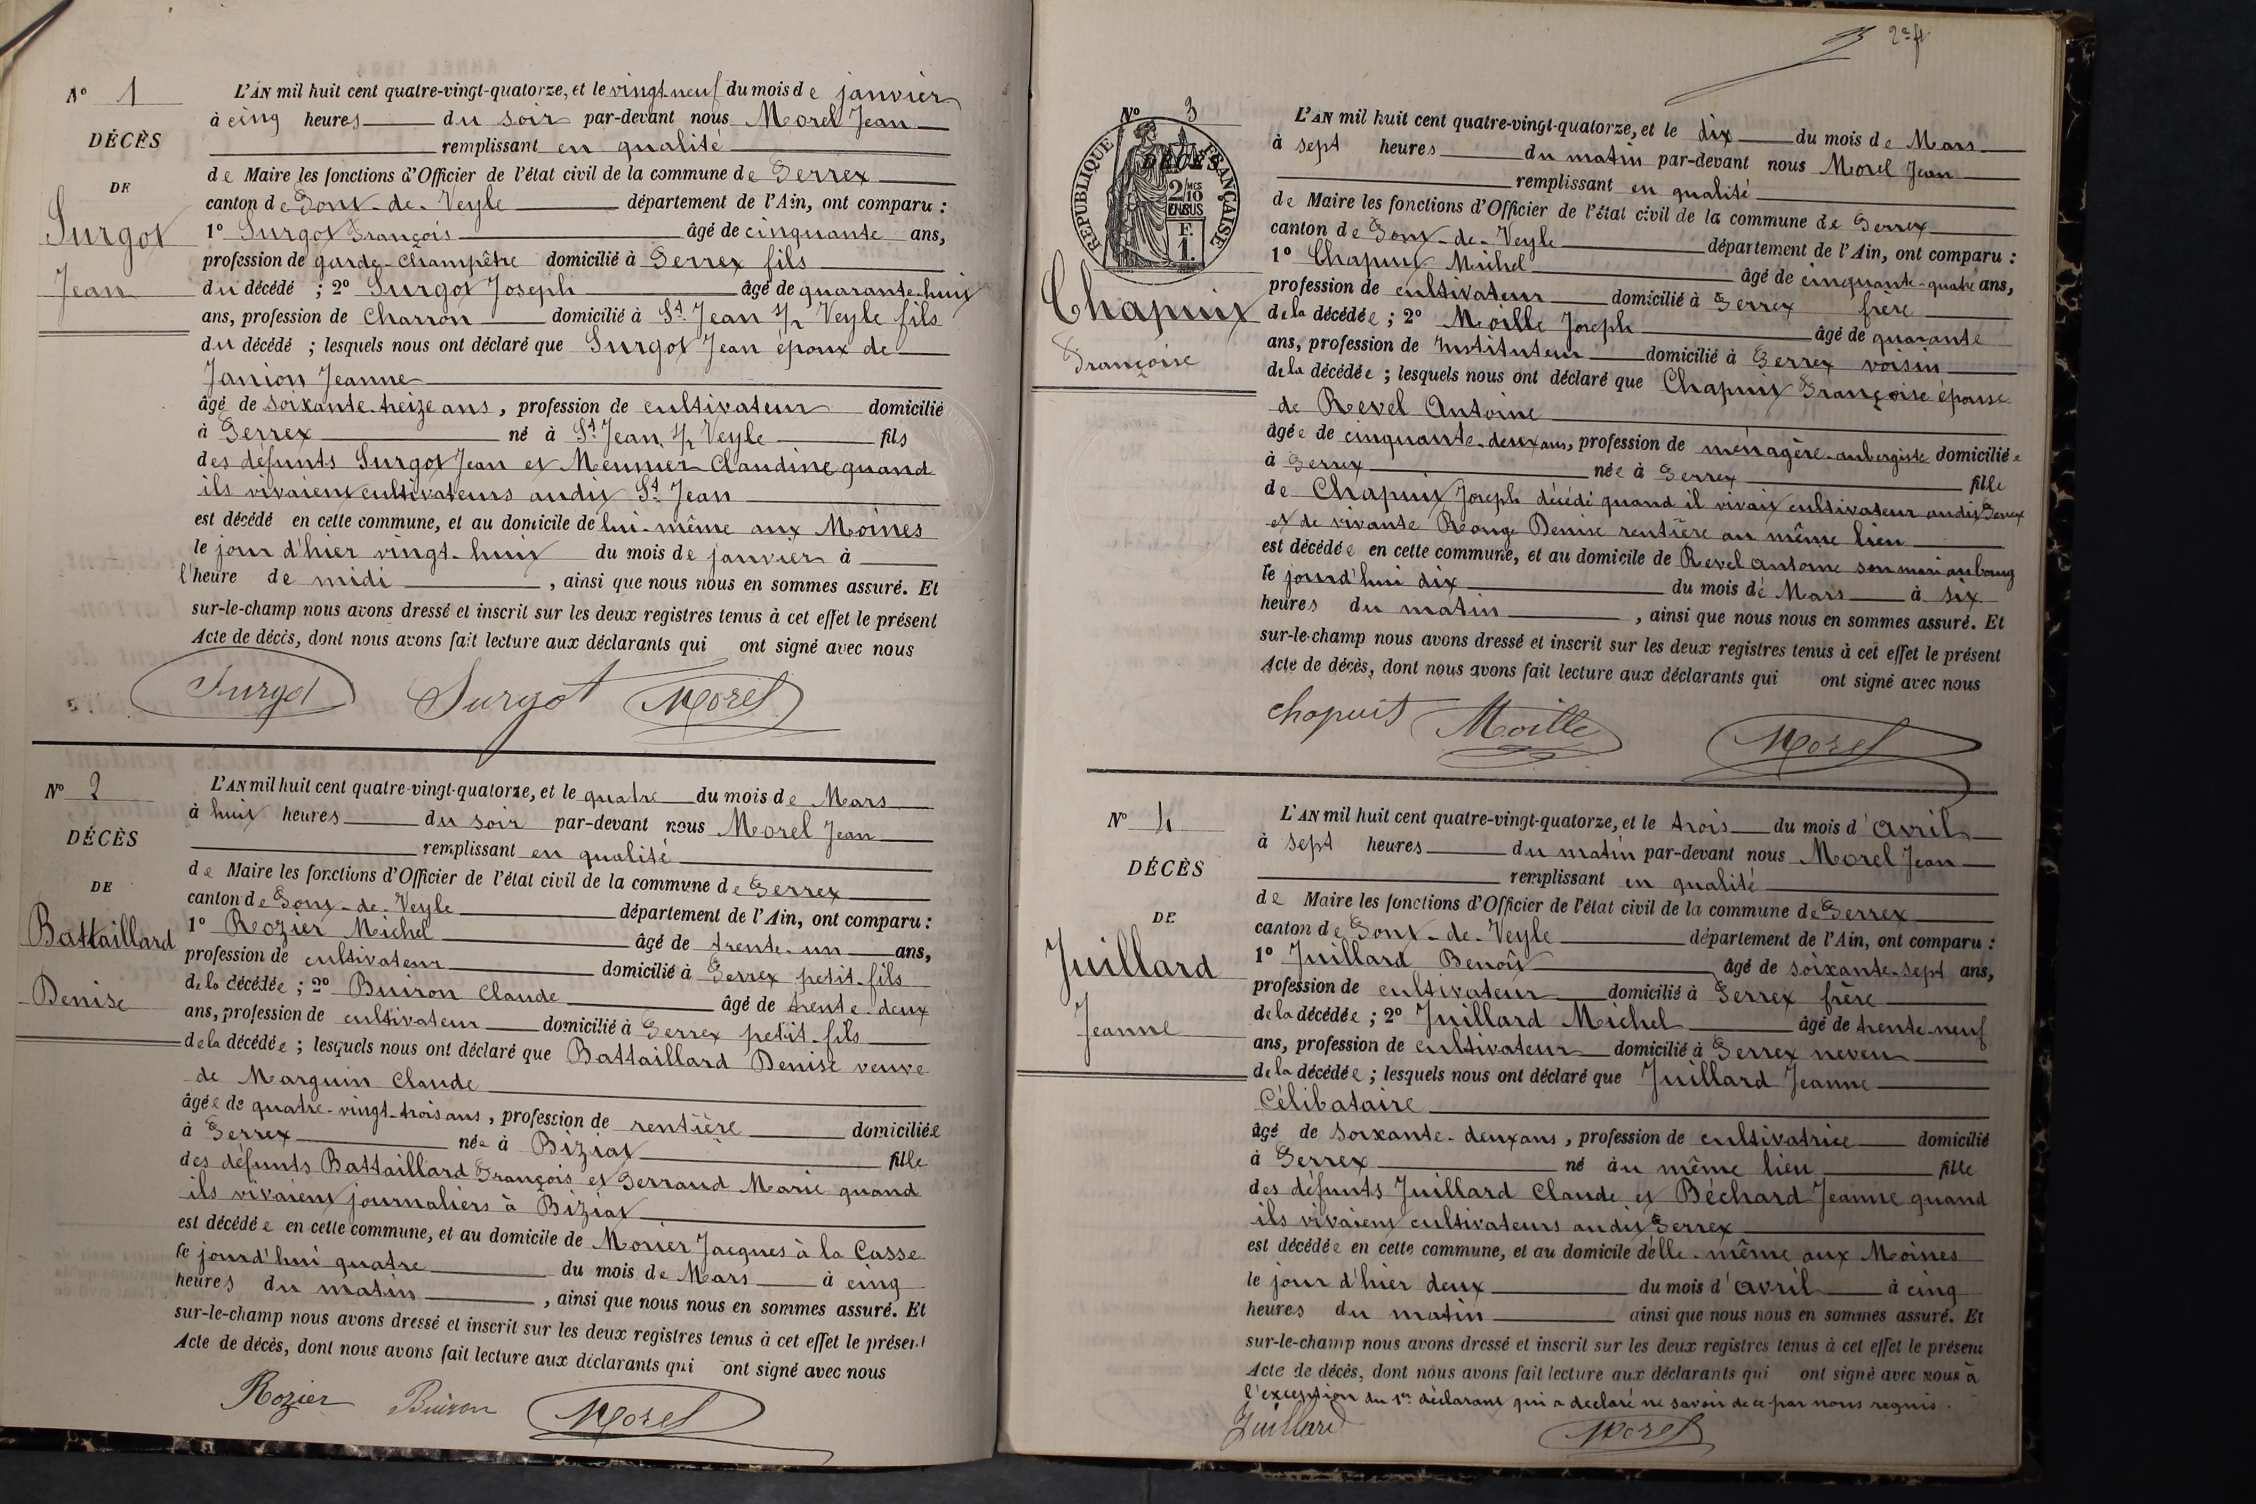 N° 1
DÉCÈS
DE
Surgot
Jean
L'AN mil huit cent quatre-vingt-quatorze, et le vingt-neuf du mois de janvier
à cinq heures du soir par-devant nous Morel Jean
remplissant en qualité
de Maire les fonctions d'Officier de l'état civil de la commune de Perrex
canton de Pont-de-Veyle département de l'Ain, ont comparu :
1° Surgot François âgé de cinquante ans,
profession de garde-champêtre domicilié à Perrex fils
du décédé ; 2° Surgot Joseph âgé de quarante-huit
ans, profession de Charron domicilié à St Jean s/r Veyle fils
du décédé ; lesquels nous ont déclaré que Surgot Jean époux de
Janion Jeanne
âgé de soixante-treize ans, profession de cultivateur domicilié
à Perrex né à St Jean s/r Veyle fils
des défunts Surgot Jean et Meunier Claudine quand
ils vivaient cultivateurs audit St Jean
est décédé en cette commune, et au domicile de lui-même aux Moines
le jour d'hier vingt-huit du mois de janvier à
l'heure de midi , ainsi que nous nous en sommes assuré. Et
sur-le-champ nous avons dressé et inscrit sur les deux registres tenus à cet effet le présent
Acte de décès, dont nous avons fait lecture aux déclarants qui ont signé avec nous
Surgot Surgot Morel
N° 2
DÉCÈS
DE
Battaillard
Denise
L'AN mil huit cent quatre-vingt-quatorze, et le quatre du mois de Mars
à huit heures du soir par-devant nous Morel Jean
remplissant en qualité
de Maire les fonctions d'Officier de l'état civil de la commune de Perrex
canton de Pont-de-Veyle département de l'Ain, ont comparu :
1° Rozier Michel âgé de trente-un ans,
profession de cultivateur domicilié à Perrex petit-fils
de la décédée ; 2° Buiron Claude âgé de trente-deux
ans, profession de cultivateur domicilié à Perrex petit-fils
de la décédée ; lesquels nous ont déclaré que Battaillard Denise veuve
de Marguin Claude
âgée de quatre-vingt-trois ans, profession de rentière domiciliée
à Perrex née à Biziat fille
des défunts Battaillard François et Perraud Marie quand
ils vivaient journaliers à Biziat
est décédée en cette commune, et au domicile de Monier Jacques à la Casse
le jourd'hui quatre du mois de Mars à cinq
heures du matin , ainsi que nous nous en sommes assuré. Et
sur-le-champ nous avons dressé et inscrit sur les deux registres tenus à cet effet le présent
Acte de décès, dont nous avons fait lecture aux déclarants qui ont signé avec nous
Rozier Buiron Morel
2e f
N° 3
DÉCÈS
RÉPUBLIQUE FRANÇAISE
2/10 EN SUS
F. 1.
Chapuis
Françoise
L'AN mil huit cent quatre-vingt-quatorze, et le dix du mois de Mars
à sept heures du matin par-devant nous Morel Jean
remplissant en qualité
de Maire les fonctions d'Officier de l'état civil de la commune de Perrex
canton de Pont-de-Veyle département de l'Ain, ont comparu :
1° Chapuis Michel âgé de cinquante-quatre ans,
profession de cultivateur domicilié à Perrex frère
de la décédée ; 2° Moille Joseph âgé de quarante
ans, profession de Instituteur domicilié à Perrex voisin
de la décédée ; lesquels nous ont déclaré que Chapuis Françoise épouse
de Revel Antoine
âgée de cinquante-deux ans, profession de ménagère-aubergiste domiciliée
à Perrex née à Perrex fille
de Chapuis Joseph décédé quand il vivait cultivateur audit Perrex
et de vivante Denise rentière au même lieu
est décédée en cette commune, et au domicile de Revel Antoine son mari au bourg
le jourd'hui dix du mois de Mars à six
heures du matin , ainsi que nous nous en sommes assuré. Et
sur-le-champ nous avons dressé et inscrit sur les deux registres tenus à cet effet le présent
Acte de décès, dont nous avons fait lecture aux déclarants qui ont signé avec nous
chapuis Moille Morel
N° 4
DÉCÈS
DE
Juillard
Jeanne
L'AN mil huit cent quatre-vingt-quatorze, et le trois du mois d'avril
à sept heures du matin par-devant nous Morel Jean
remplissant en qualité
de Maire les fonctions d'Officier de l'état civil de la commune de Perrex
canton de Pont-de-Veyle département de l'Ain, ont comparu :
1° Juillard Benoît âgé de soixante-sept ans,
profession de cultivateur domicilié à Perrex frère
de la décédée ; 2° Juillard Michel âgé de trente-neuf
ans, profession de cultivateur domicilié à Perrex neveu
de la décédée ; lesquels nous ont déclaré que Juillard Jeanne
Célibataire
âgé de soixante-deux ans, profession de cultivatrice domicilié
à Perrex né au même lieu fille
des défunts Juillard Claude et Béchard Jeanne quand
ils vivaient cultivateurs audit Perrex
est décédée en cette commune, et au domicile d'elle-même aux Moines
le jour d'hier deux du mois d'avril à cinq
heures du matin ainsi que nous nous en sommes assuré. Et
sur-le-champ nous avons dressé et inscrit sur les deux registres tenus à cet effet le présent
Acte de décès, dont nous avons fait lecture aux déclarants qui ont signé avec nous à
l'exception du 1er déclarant qui a déclaré ne savoir de ce par nous requis.
Juillard Morel